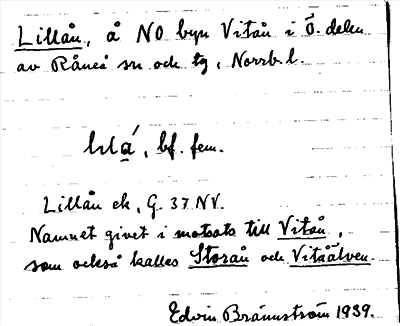 Lillån, å NO byn Vitån i Ö. delen
av Råneå sn och tg, Norrb. l.
bf. fem.
Lillån ek, G. 37 NV.
Namnet givet i motsats till Vitån,
som också kallas Storån och Vitåälven.
Edvin Brännström 1939.